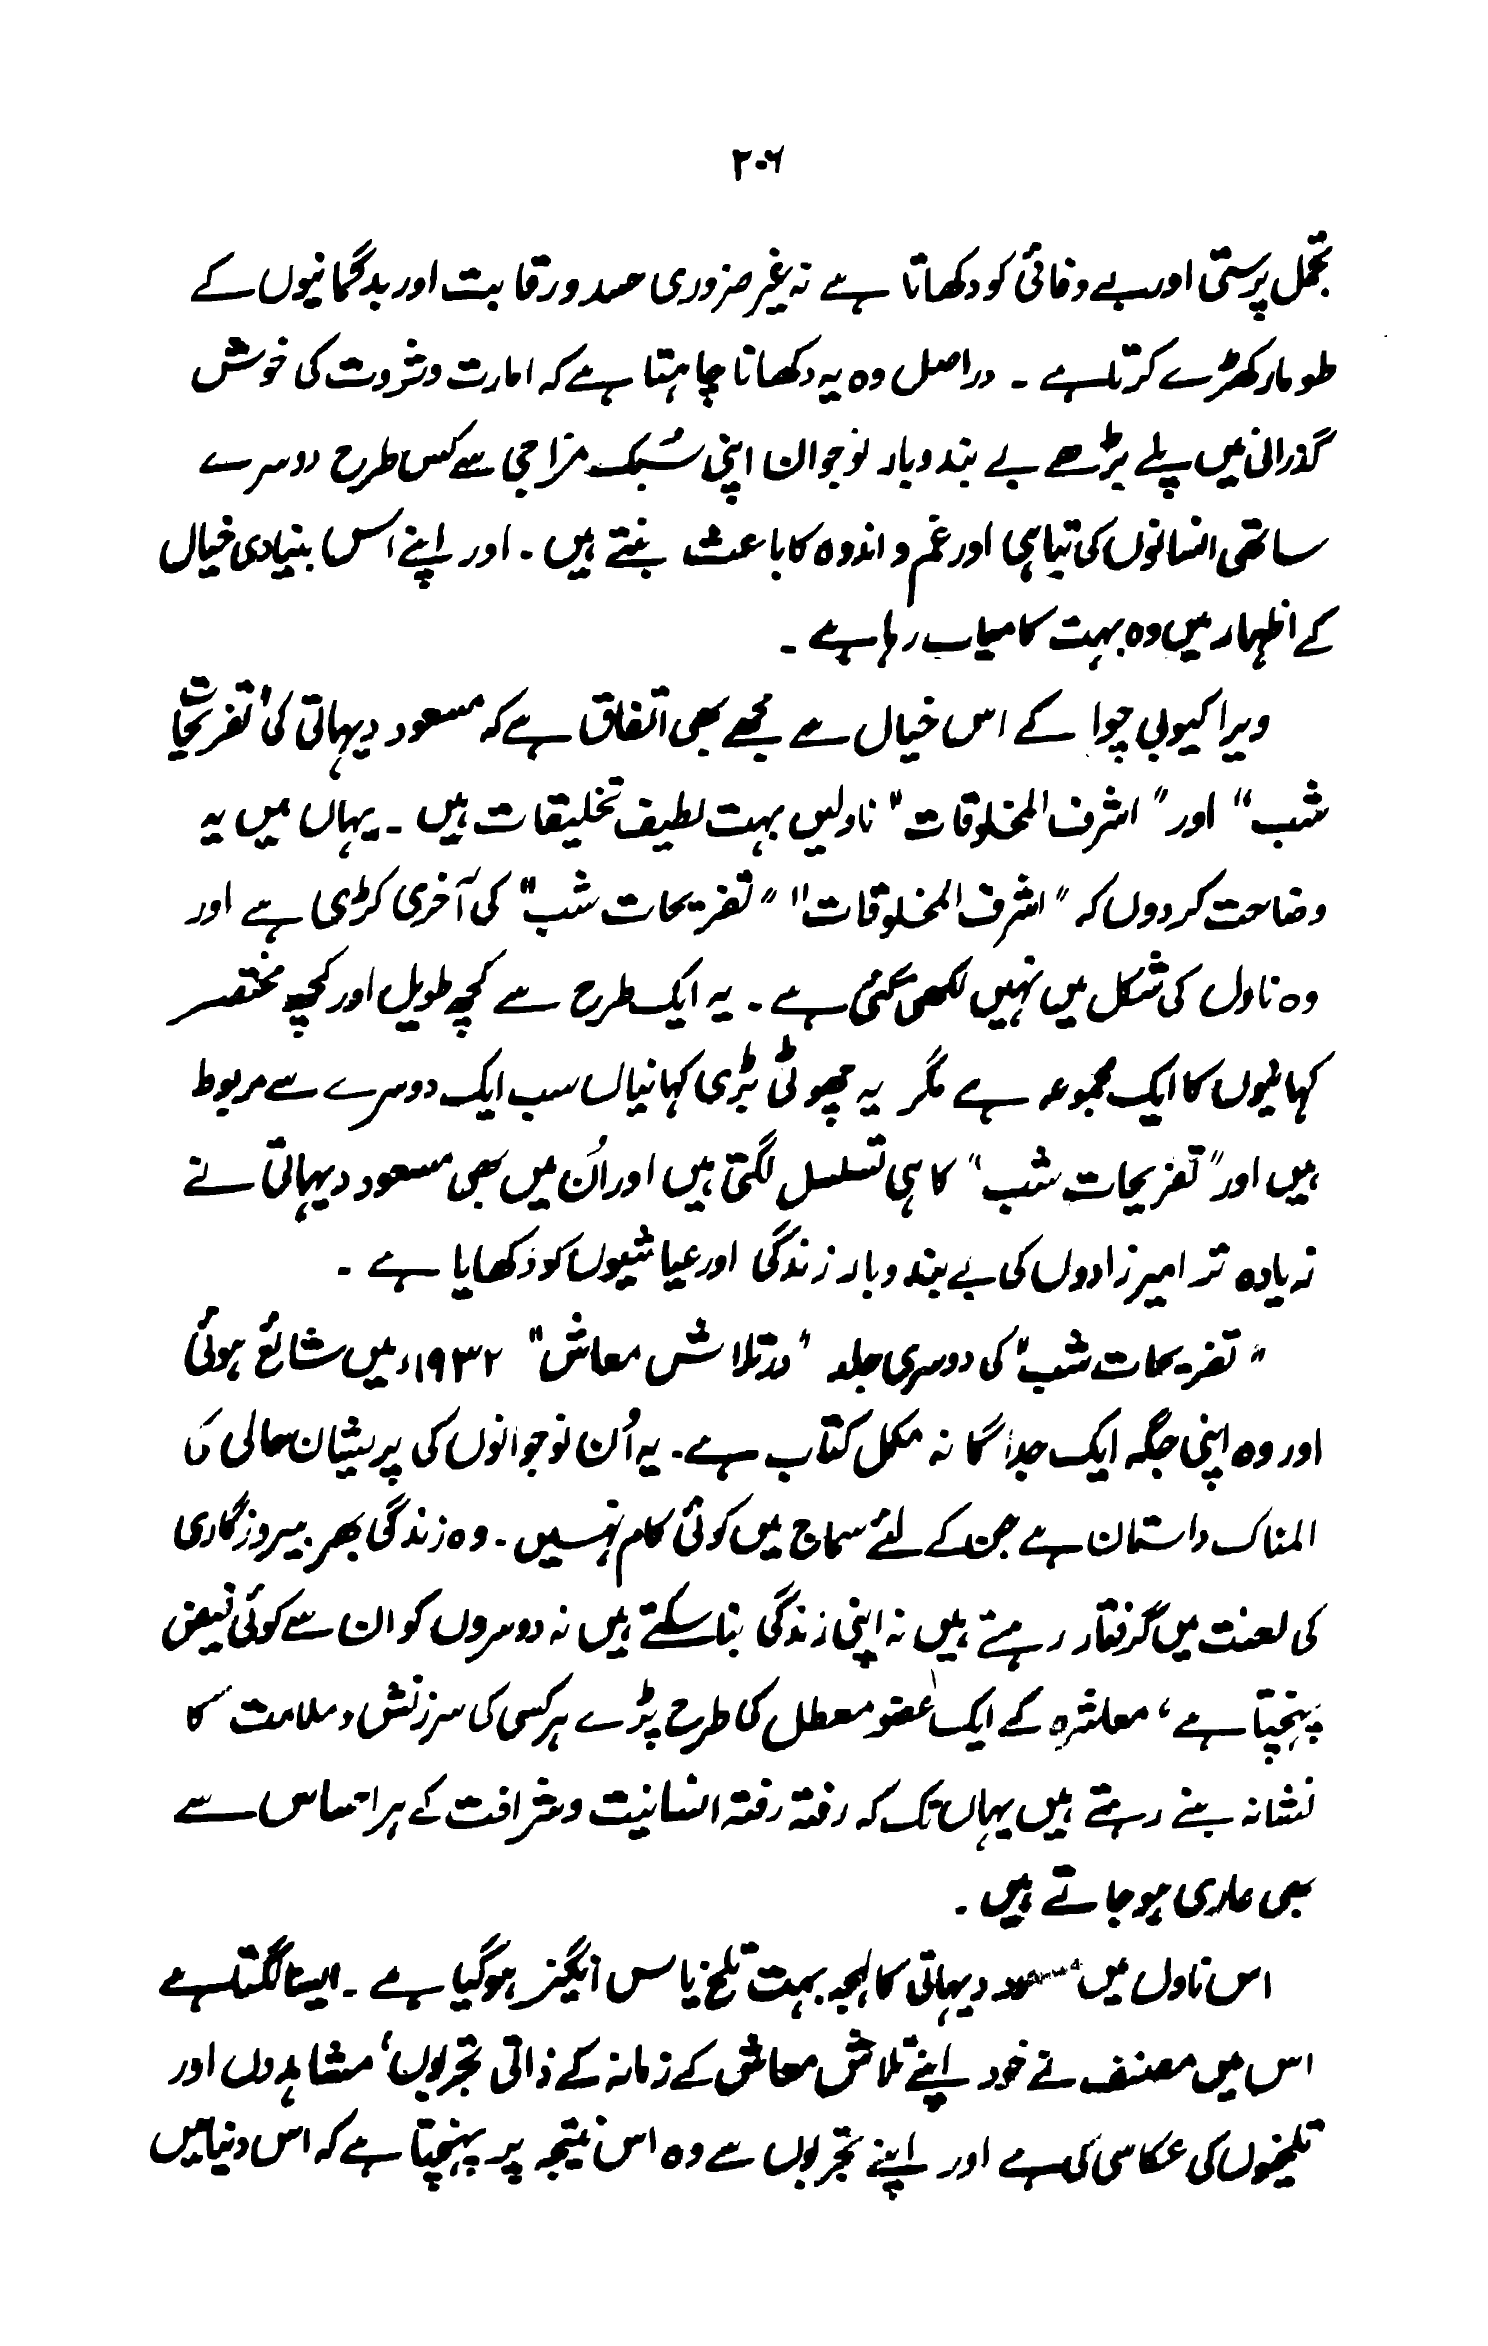 ۲۰۶
تجمل پرستی اور بے وفائی کو دکھاتا ہے نہ غیر ضروری حسد و رقابت اور بدگمانیوں کے
طومار کھڑے کرتا ہے ۔ دراصل وہ یہ دکھانا چاہتا ہے کہ امارت و ثروت کی خوش
گذرانی میں پلے بڑھے بے بند و بار نوجوان اپنی سُبک مزاجی سے کس طرح دوسرے
ساتھی انسانوں کی تباہی اور غم و اندوہ کا باعث بنتے ہیں ۔ اور اپنے اس بنیادی خیال
کے اظہار میں وہ بہت کامیاب رہا ہے ۔
ویرا کیوبی چوا کے اس خیال سے مجھے بھی اتفاق ہے کہ مسعود دیہاتی کی "تفریحات
شب" اور "اشرف المخلوقات" ناولیں بہت لطیف تخلیقات ہیں ۔ یہاں میں یہ
وضاحت کردوں کہ "اشرف المخلوقات" "تفریحات شب" کی آخری کڑی ہے اور
وہ ناول کی شکل میں نہیں لکھی گئی ہے ۔ یہ ایک طرح سے کچھ طویل اور کچھ مختصر
کہانیوں کا ایک مجموعہ ہے مگر یہ چھوٹی بڑی کہانیاں سب ایک دوسرے سے مربوط
ہیں اور "تفریحات شب" کا ہی تسلسل لگتی ہیں اور اُن میں بھی مسعود دیہاتی نے
زیادہ تر امیرزادوں کی بے بند و بار زندگی اور عیاشیوں کو دکھایا ہے ۔
"تفریحات شب" کی دوسری جلد "در تلاش معاش" ۱۹۳۲ء میں شائع ہوئی
اور وہ اپنی جگہ ایک جداگانہ مکمل کتاب ہے ۔ یہ اُن نوجوانوں کی پریشان حالی کا
المناک داستان ہے جن کے لئے سماج میں کوئی کام نہیں ۔ وہ زندگی بھر بیروزگاری
کی لعنت میں گرفتار رہتے ہیں نہ اپنی زندگی بنا سکتے ہیں نہ دوسروں کو ان سے کوئی فیض
پہنچتا ہے، معاشرہ کے ایک عضو معطل کی طرح پڑے ہر کسی کی سرزنش و ملامت کا
نشانہ بنے رہتے ہیں یہاں تک کہ رفتہ رفتہ انسانیت و شرافت کے ہر احساس سے
بھی عاری ہو جاتے ہیں ۔
اس ناول میں مسعود دیہاتی کا لہجہ بہت تلخ یاس انگیز ہوگیا ہے ۔ ایسا لگتا ہے
اس میں مصنف نے خود اپنے تلاش معاش کے زمانہ کے ذاتی تجربوں، مشاہدوں اور
تلخیوں کی عکاسی کی ہے اور اپنے تجربوں سے وہ اس نتیجہ پر پہنچتا ہے کہ اس دنیا میں